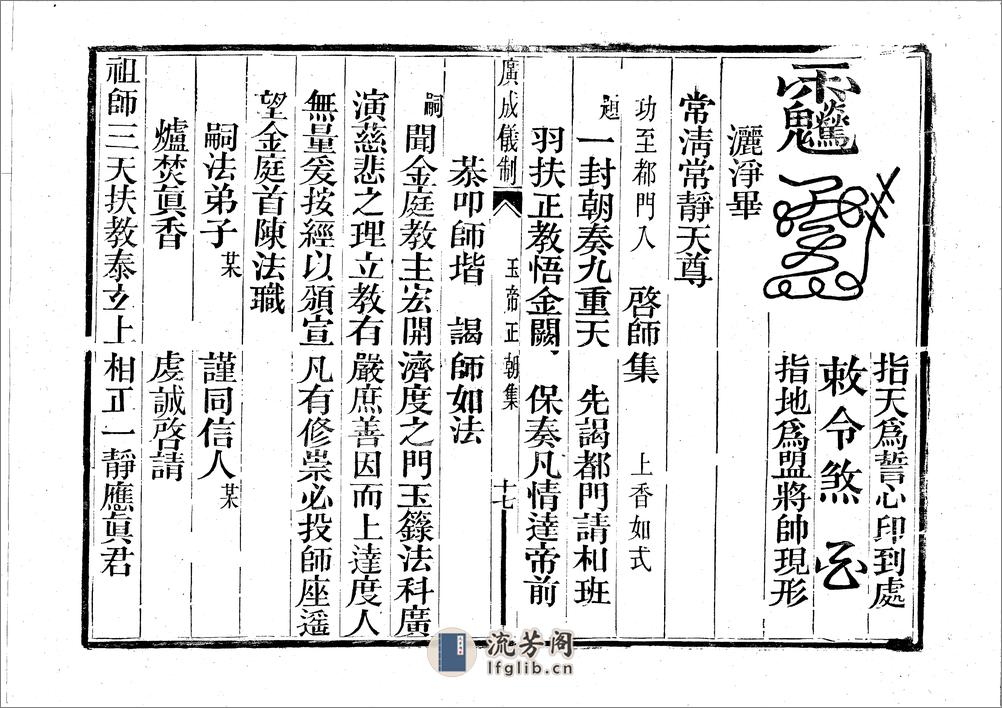 指天爲誓心印到處
敕令煞
指地爲盟將帥現形
灑淨畢
常淸常靜天尊
功至都門入 啓師集 上香如式
一封朝奏九重天 先謁都門請相班
羽扶正教悟金闕、 保奏凡情達帝前
廣成儀制 玉帝正朝集 十七
恭叩師堦 謁師如法
嗣聞金庭教主宏開濟度之門玉籙法科廣
演慈悲之理立教有嚴庶善因而上達度人
無量爰按經以頒宣凡有修崇必投師座遥
望金庭首陳法職
嗣法弟子某 謹同信人某
爐焚眞香 虔誠啓請
祖師三天扶教泰玄上相正一靜應眞君
流芳阁
lfglib.cn